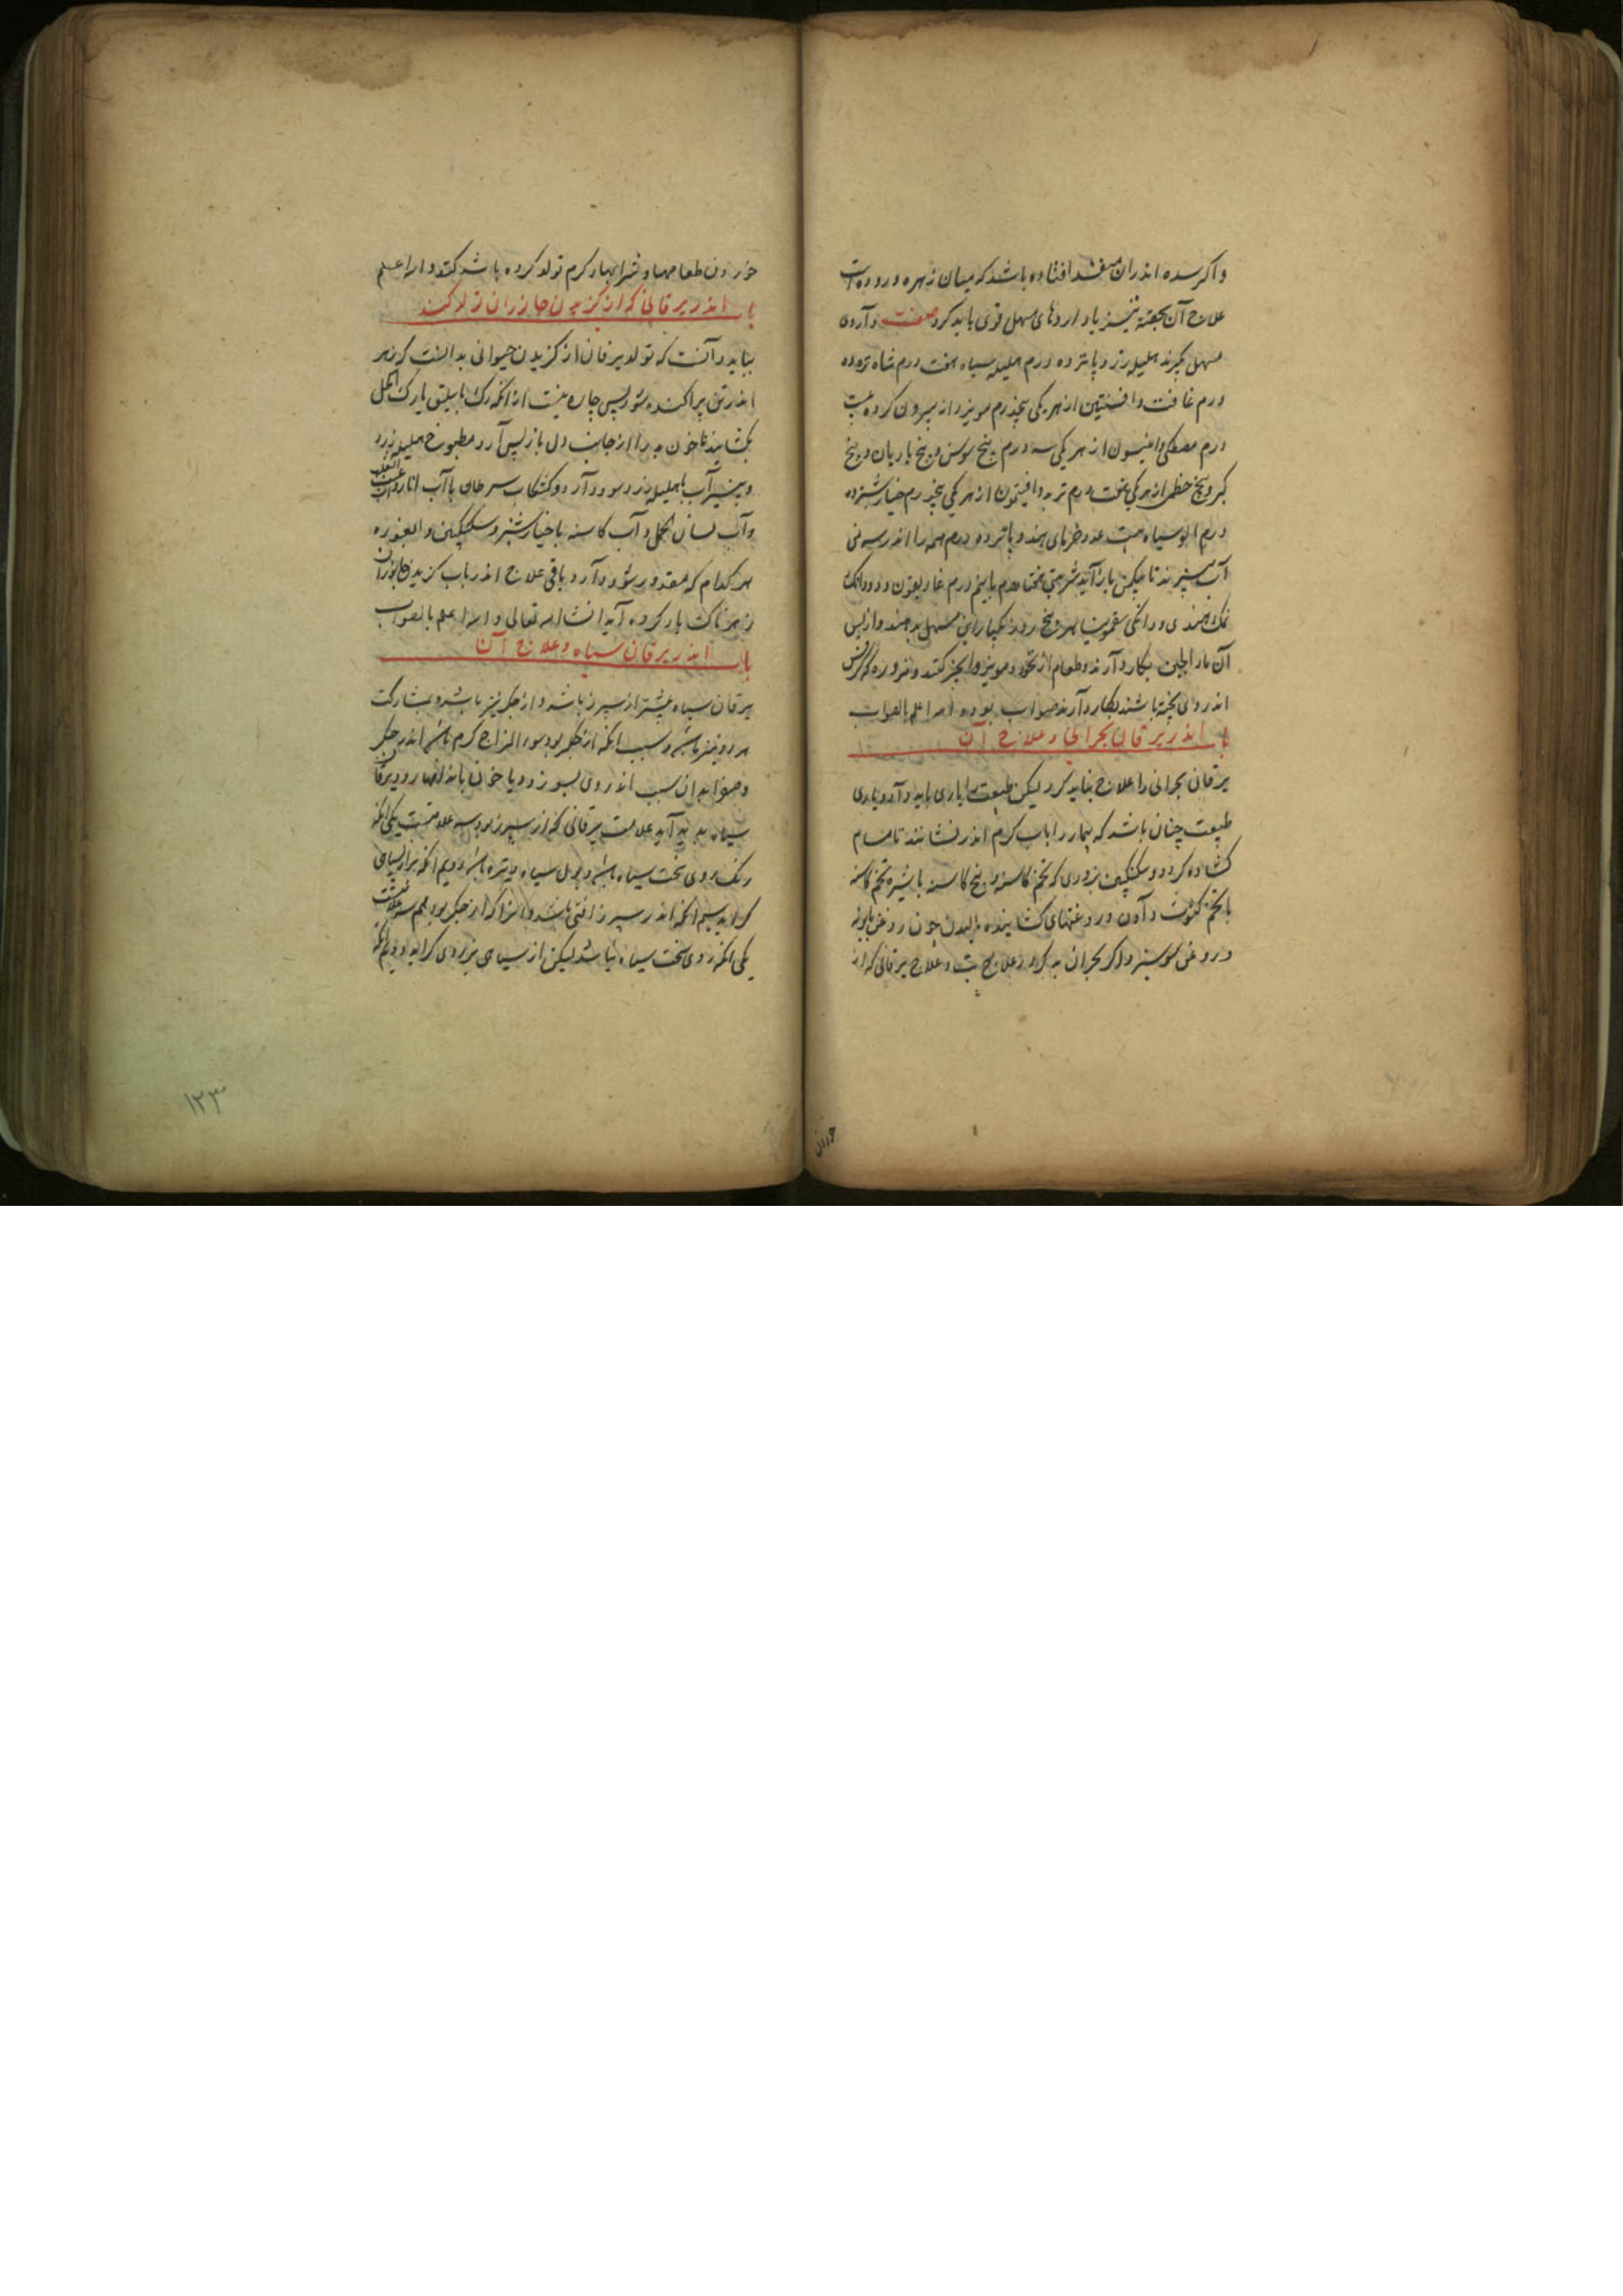 واکر سده اندران منفذ افتاده باشد که میان زهره و روده است
علاج آن بحقنه تیز یا داروهای مسهل قوی باید کرد صفت داروی
مسهل بکیرند هلیله زرد پانزده درم هلیله سیاه هفت درم شاه تره ده
درم غافت وافسنتین از هر یکی پنجدرم مویز دانه بیرون کرده بیست
درم مصطکی وانیسون از هر یکی سه درم بیخ سوس و بیخ بادیان و بیخ
کبر و بیخ خطمی از هر یکی هفت درم تربد وافتیمون از هر یکی پنجدرم خیارشنبر ده
درم الو سیاه بیست عدد خرمای هندو پانزده درم همه را اندر سه من
آب بپزند تا بیکمن باز آید شربتی هفتاد درم با نیم درم غاریقون و دو دانک
نمک هندی و دانکی سقمونیا هر پنج روز یکبار این مسهل بدهند و از پس
آن ماء الجبن بکار دارند و طعام از نخود و مویز و انجیر کنند و مزوره که کرفس
اندر وی پخته باشند بکار دارند صواب بود والله اعلم بالصواب
باب اندر یرقان بحرانی و علاج آن
یرقان بحرانی را علاج نباید کرد لیکن طبیعت را یاری باید داد و یاری
طبیعت چنان باشد که بیمار را باب کرم اندر نشانند تا مسام
کشاده کردد و سکنکبین بزوری که تخم کاسنه و بیخ کاسنه با شیره تخم کاسنه
یا تخم کثوث دادن و روغنهای کشاینده مالیدن چون روغن بابونه
و روغن سوسن و اکر بحران بد کردد علاج تب و علاج یرقانی که از
خوردن
خوردن طعامها و شرابهاء کرم تولد کرده باشد کنند والله اعلم
باب اندر یرقانی که از کزیدن جانوران تولد کند
بباید دانست که تولد یرقان از کزیدن حیوانی بدانست که زهر
اندر تن پراکنده شود پس چاره نیست از انکه رک باسلیق یا رک اکحل
بکشایند تا خون بد را از جانب دل باز پس آرد و مطبوخ هلیله زرد
و پنیر آب با هلیله زرد سود دارد و کشکاب سرطان با آب انار و آب عنب الثعلب
و آب لسان الحمل و آب کاسنه با خیارشنبر و سکنکبین و
هر کدام که مقدور شود دارد و باقی علاج اندر باب کزیدن جانوران
زهرناک یاد کرده آید انشاء الله تعالی والله اعلم بالصواب
باب اندر یرقان سیاه و علاج آن
یرقان سیاه بیشتر از سپرز باشد و از جکر نیز باشد و بمشارکت
هر دو نیز باشد و سبب انکه از جکر بود سوء المزاج کرم باشد اندر جکر
و صفرا بدان سبب اندر وی بسوزد و با خون باندامها رود و یرقان
سیاه بدید آید علامت یرقانی که از سپرز بود سه علامتست یکی انکه
رنک روی سخت سیاه باشد و بول سیاه و تیره باشد دویم انکه براز بسیاهی
کراید سیم انکه اندر سپرز افتی باشد و انرا که از جکر بود هم سه علامتست
یکی انکه روی سخت سیاه نباشد لیکن از سیاهی بزردی کراید و دویم انکه
۱۲۳